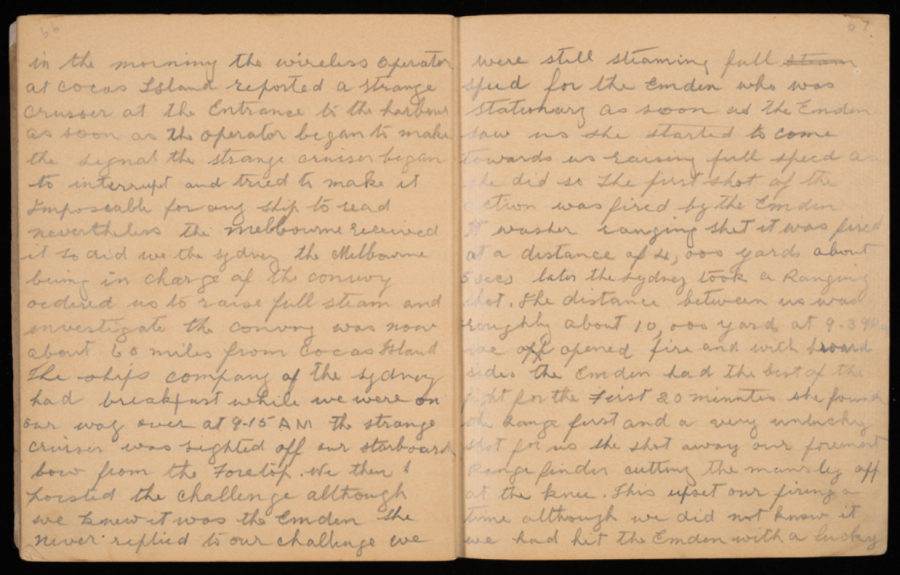 66
in the morning the wireless operator
at Cocas Island reported a strange
Crusser at the Entrance to the harbour
as soon as the operator began to make
the signal the strange cruiser began
to interrupt and tried to make it
Imposcable for any ship to read
nevertheless the Melbourne received
it so did we the sydney the Melbourne
being in charge of the convoy
ordered us to raise full steam and
investigate the convoy was now
about 60 miles from Cocas Island
The ships company of the sydney
had breakfast while we were on
our way over at 9-15 AM the strange
cruiser was sighted off our starboard
bow from the Foretop. We then
hoisted the challenge although
we knew it was the Emden she
never replied to our challenge we
67
were still steaming full steam
speed for the Emden who was
Stationary as soon as the Emden
saw us she started to come
towards us raising full speed as
she did so The first shot of the
action was fired by the Emden
It was her ranging shot it was fired
at a distance of yards about
5 secs later the Sydney took a Ranging
shot. The distance between us was
roughly about 10,000 yards at
we opened fire and with broard
sides the Emden had the best of the
fight for the First 20 minutes she found
the Range first and a very unlucky
shot for us she shot away our foremost
Range finder cutting the mans leg off
at the knee. This upset our firing a
time although we did not know it
we had hit the Emden with a lucky